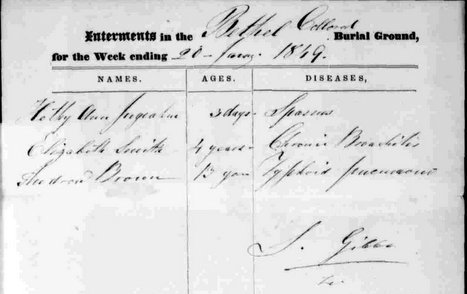 Interments in the Bethel Collored Burial Ground,
for the Week ending 20 - Jany - 1849.
NAMES. AGES. DISEASES,
Ann 3 days - Spasms
Elizabeth Smith 4 years - Chronic Bronchitis
Andrew Brown 13 year Typhoid pneumonia